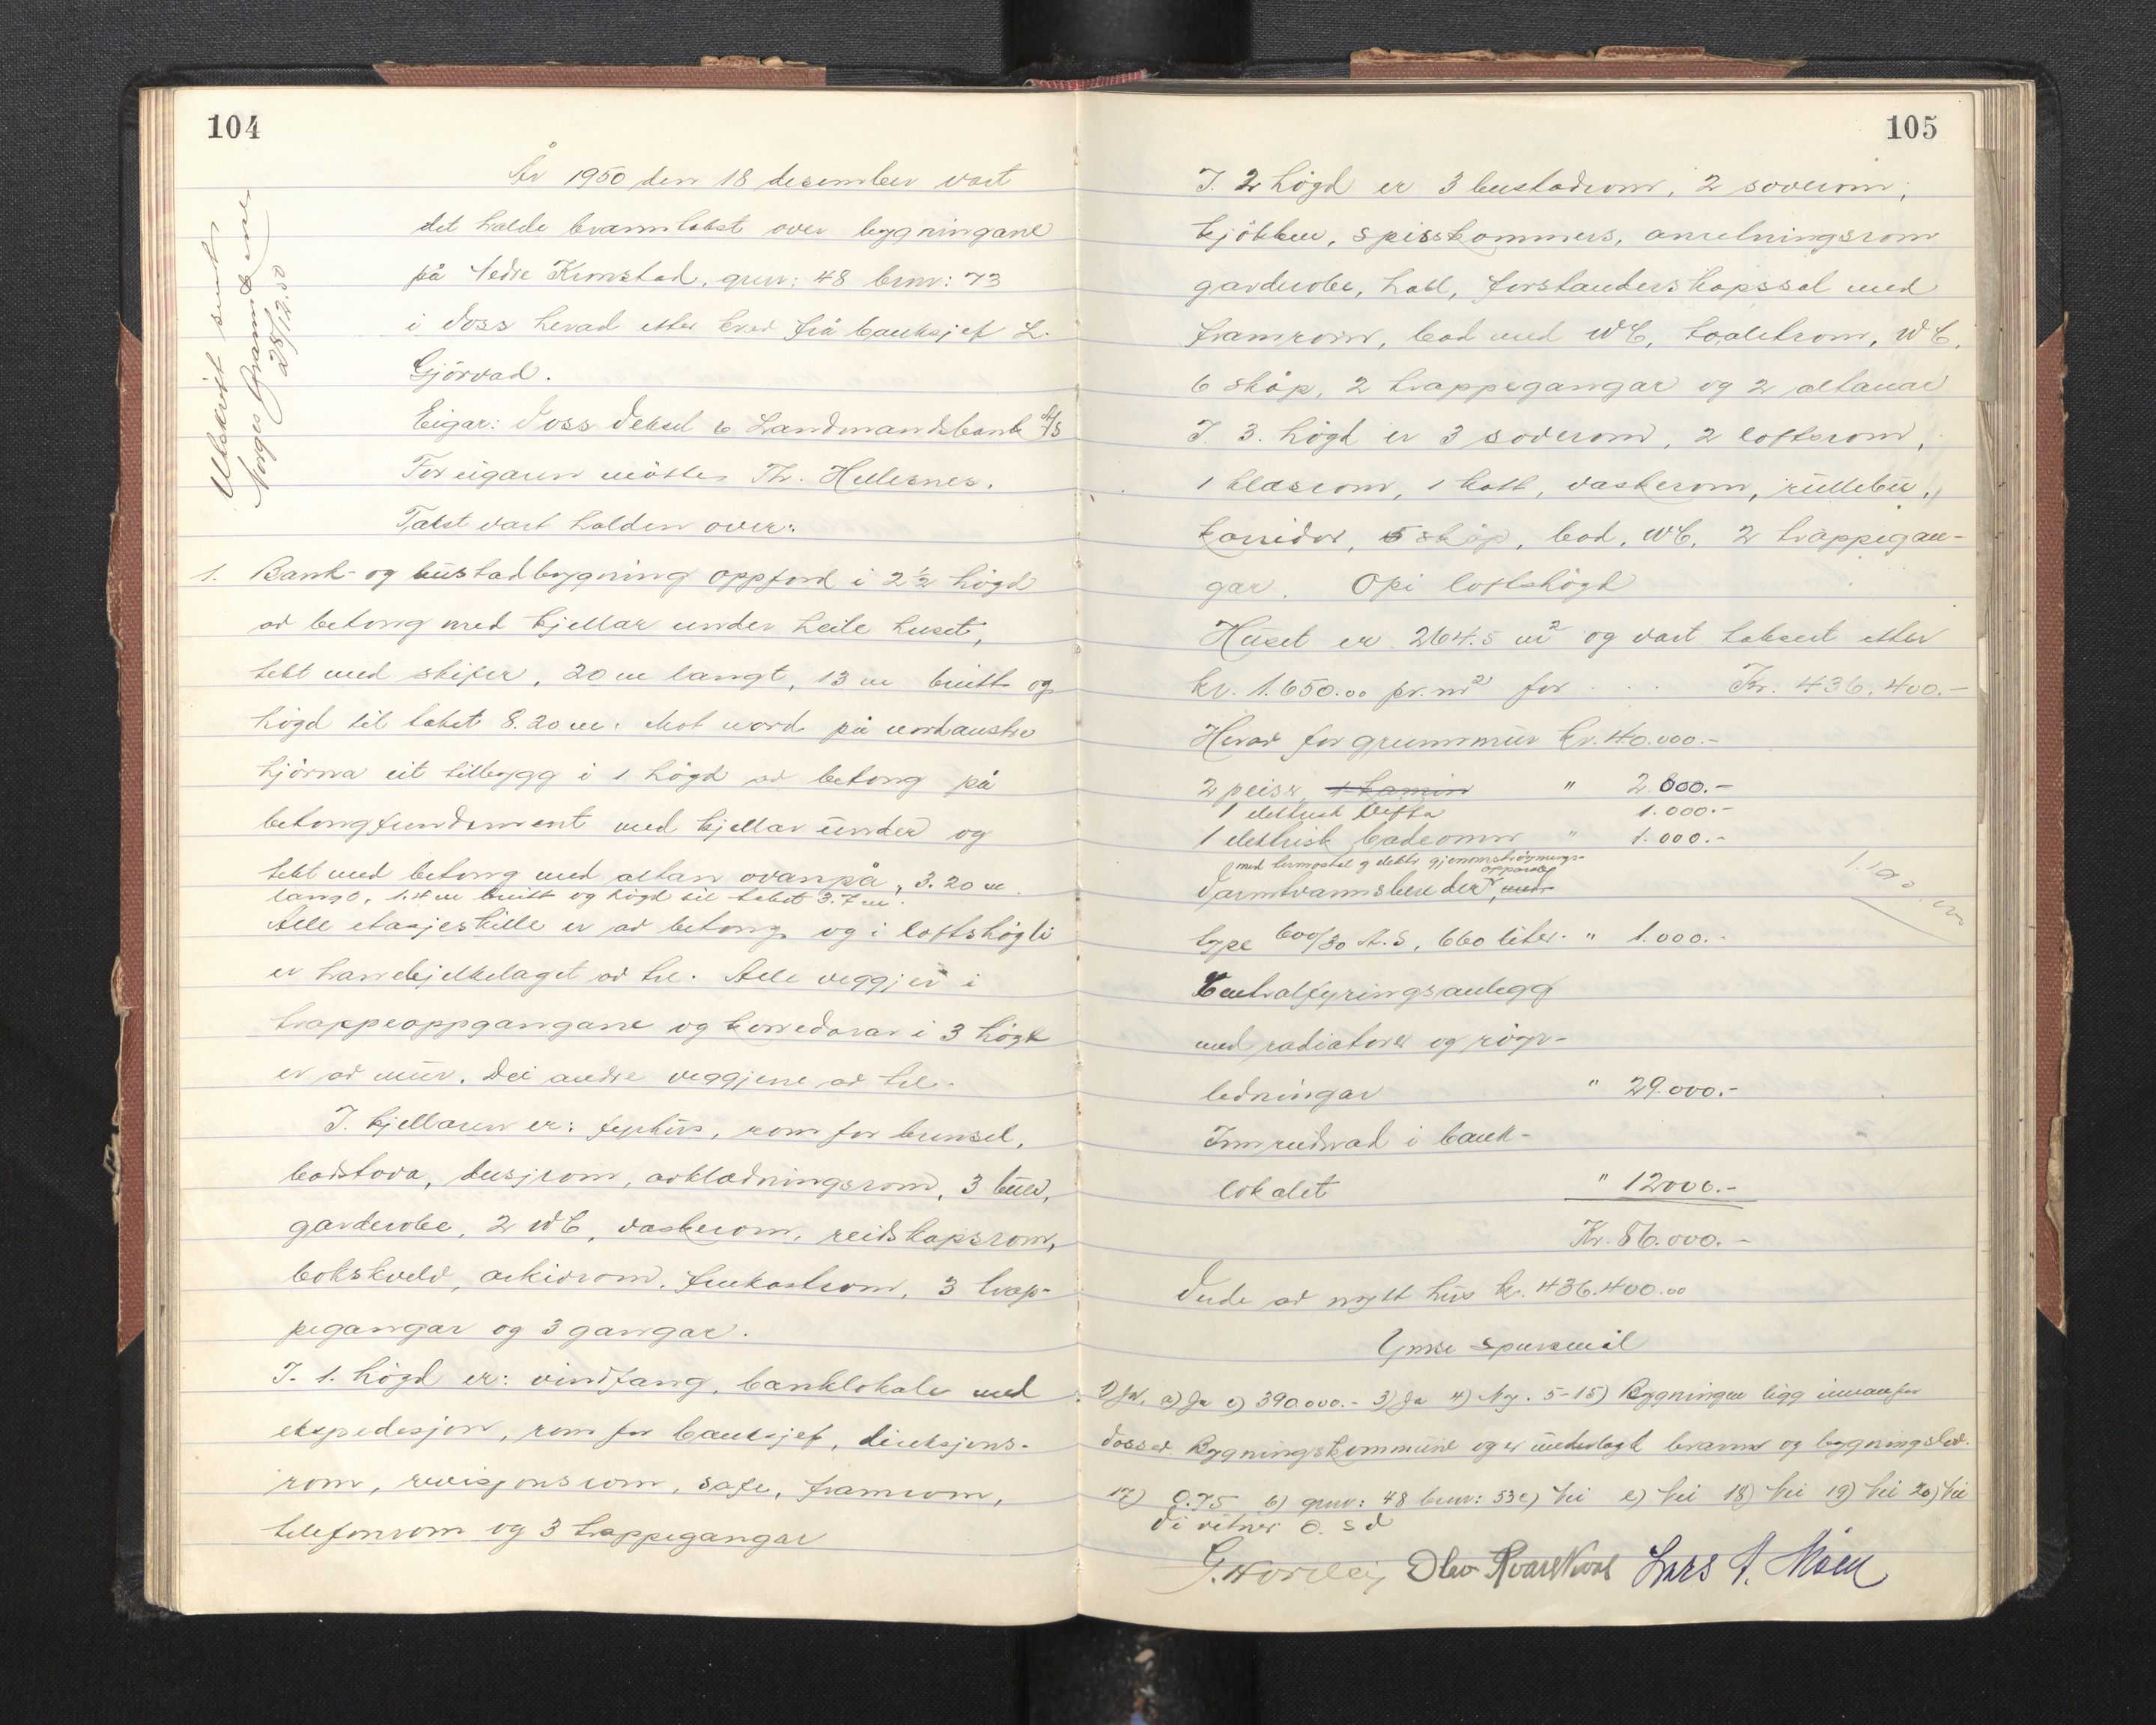 104
Utskrift sendt
Norges Brannkasse
28/12.50
År 1950 den 18 desember vart
det halde branntakst over bygningane
på Nedre Kinstad, gnr: 48 bnr: 73
i Voss herad etter krav frå banksjef L.
Gjörvad.
Eigar: Voss Veksel & Landmandsbank A/S
For eigaren møtte Th. Hellesnes.
Takst vart halden over:
1. Bank- og bustadbygning oppförd i 2 1/2 högd
av betong med kjellar under heile huset,
tekt med skifer, 20 m langt, 13 m breitt og
högd til taket 8.20 m. Mot nord på nordaustre
hjörna eit tilbygg i 1 högd av betong på
betongfundament med kjellar under og
tekt med betong med altan ovanpå, 3.20 m
langt, 1.4 m breitt og högd til taket 3.7 m.
Alle etasjeskille er av betong og i loftshögdi
er hanebjelkelaget av tre. Alle veggjer i
trappeoppgangane og korredorar i 3 högd
er av mur. Dei andre veggjene av tre.
I kjellaren er: fyrhus, rom for brensel,
badstova, dusjrom, avklædningsrom, 3 buer,
garderobe, 2 WC, vaskerom, reidskapsrom,
bokskvelv, arkivrom, frukostrom, 3 trap-
pegangar og 3 gangar.
I. 1. högd er: vindfang, banklokale med
ekspedisjon, rom for banksjef, direksjons-
rom, revisjonsrom, safe, framrom,
telefonrom og 3 trappegangar
105
I. 2 högd er 3 bustadrom, 2 soverom,
kjökken, spisskammers, anretningsrom
garderobe, hall, forstanderskapssal med
framrom, bad med WC, toaletrom, WC,
6 skåp, 2 trappegangar og 2 altanar
I. 3. högd er 3 soverom, 2 loftsrom,
1 klæsrom, 1 kott, vaskerom, rullebu,
korridor, 5 skåp, bad, WC, 2 trappegan-
gar. Opi loftshögd
Huset er 264.5 m2 og vart taksert etter
kr. 1.650.00 pr. m2 for . . . Kr. 436.400.-
Herav for grunnmur kr. 40.000.-
2 peisr, 1 kamin " 2.000.-
1 elektrisk vifta 1.000.-
1 elektrisk badeomn " 1.000.-
med termostat og elektr gjennomströymings-
apparat
Varmtvannsbereder, med
type 600/30 A.S, 660 liter. " 1.000.-
Centralfyringsanlegg
med radiatorer og rör-
ledningar " 29.000.-
Innreidnad i bank-
lokalet " 12000.-
Kr. 86.000.-
Verde av nytt hus kr. 436.400.00
Ymse spursmål
1) Ja. a) Ja c) 390.000.- 3) Ja 4) Ny. 5-15) Bygningen ligg innanfor
Vossev. Bygningskommune og er underlagt brann og bygningslov.
17) 0.75 b) gnr: 48 bnr: 53 c) Nei e) Nei 18) Nei 19) Nei 20) Nei
Vi vitner o. s v
G. Nordlig Olav Kvarekvål Lars A. Møen